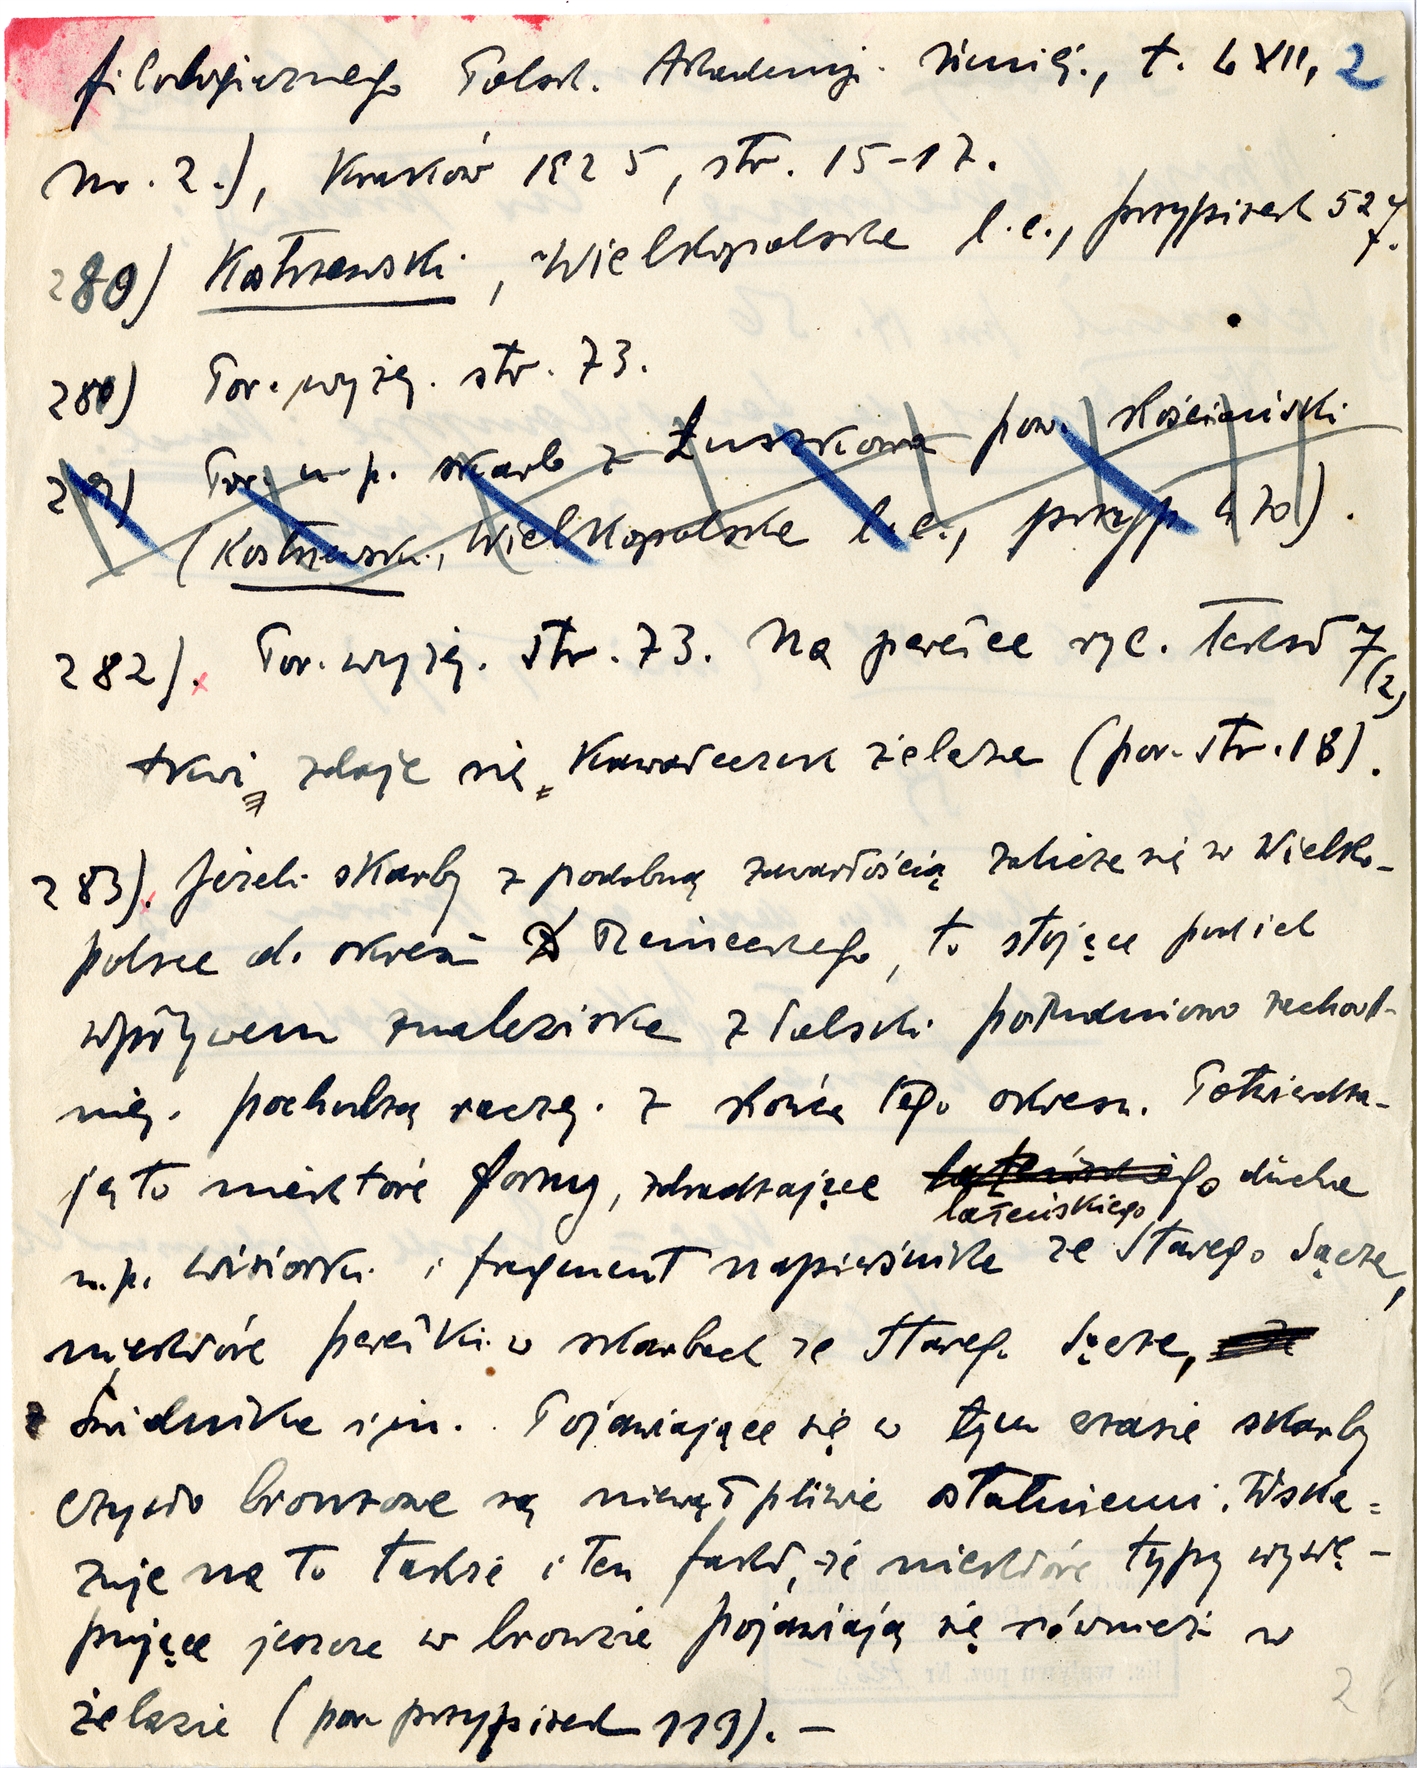 filologicznego Polsk. Akademji Umiej., t. LXII, 2
Nr. 2.), Kraków 1925, str. 15-17.
280) Kostrzewski, Wielkopolska l.c., przypisek 527.
281) Por. wyżej str. 73.
Por. n.p. skarb z Łuszkowa pow. kościański
(Kostrzewski, Wielkopolska l.c., przyp. 470).
282). Por. wyżej. str. 73. Na perełce ryc. tekst 7/2,
tkwi, zdaje się, kawałeczek żelaza (por. str. 18).
283). Jeżeli skarby z podobną zawartością zalicza się w Wielko-
polsce do okresu Reineckego, to stojące pod ich
wpływem znaleziska z Polski południowo zachod-
niej. pochodzą raczej. z końca tego okresu. Potwierdza-
ją to niektóre formy, zdradzające lateńskiego ducha
lateńskiego
n.p. wisiorki i fragment napierśnika ze Starego Sącza,
niektóre perełki w skarbach ze Starego Sącza,
z Świdnika i in. Pojawiające się w tym czasie skarby
czysto bronzowe są niewątpliwie ostatniemi. Wska=
zuje na to także i ten fakt, że niektóre typy wystę-
pujące jeszcze w bronzie pojawiają się również w
żelazie (por. przypisek 119). -
2